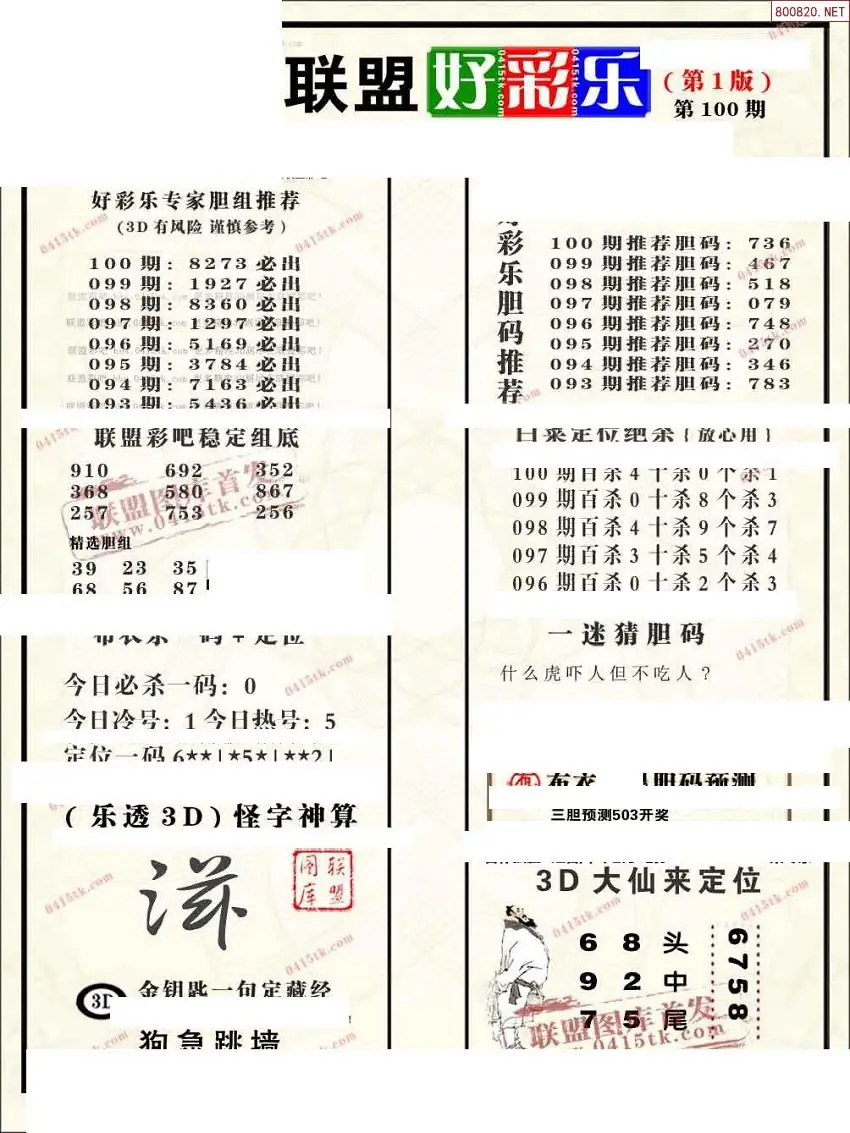 800820.NET
联盟好彩乐
(第1版)
第100期
好彩乐专家胆组推荐
(3D有风险 谨慎参考)
100期：8273必出
099期：1927必出
098期：8360必出
097期：1297必出
096期：5169必出
095期：3784必出
094期：7163必出
093期：5436必出
联盟彩吧稳定组底
910 692 352
368 580 867
257 753 256
精选胆组
39 23 35
68 56 87
今日必杀一码：0
今日冷号：1 今日热号：5
定位一码 6**|*5*|**2|
(乐透3D)怪字神算
滋
联盟图库
3D
金钥匙一句定藏经
狗急跳墙
彩乐胆码推荐
100期推荐胆码：736
099期推荐胆码：467
098期推荐胆码：518
097期推荐胆码：079
096期推荐胆码：748
095期推荐胆码：270
094期推荐胆码：346
093期推荐胆码：783
定位绝杀(放心用)
100期百杀4十杀0个杀1
099期百杀0十杀8个杀3
098期百杀4十杀9个杀7
097期百杀3十杀5个杀4
096期百杀0十杀2个杀3
一迷猜胆码
什么虎吓人但不吃人？
胆码预测
三胆预测503开奖
3D大仙来定位
6 8 头
9 2 中
7 5 尾
6758
联盟图库首发
www.0415tk.com
0415tk.com